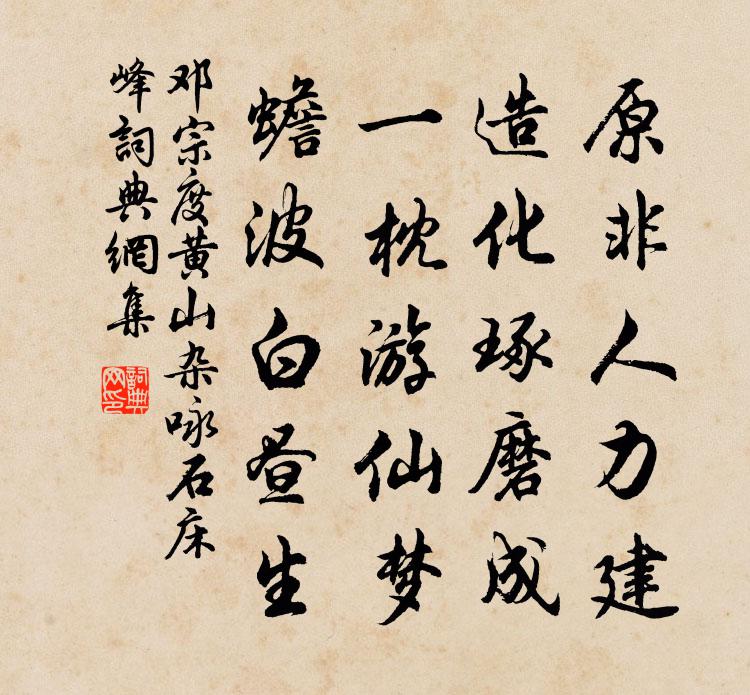 原非人力建
造化琢磨成
一枕游仙梦
蟾波白昼生
邓宗度黄山杂咏石床
峰詞典網集
詞典网印